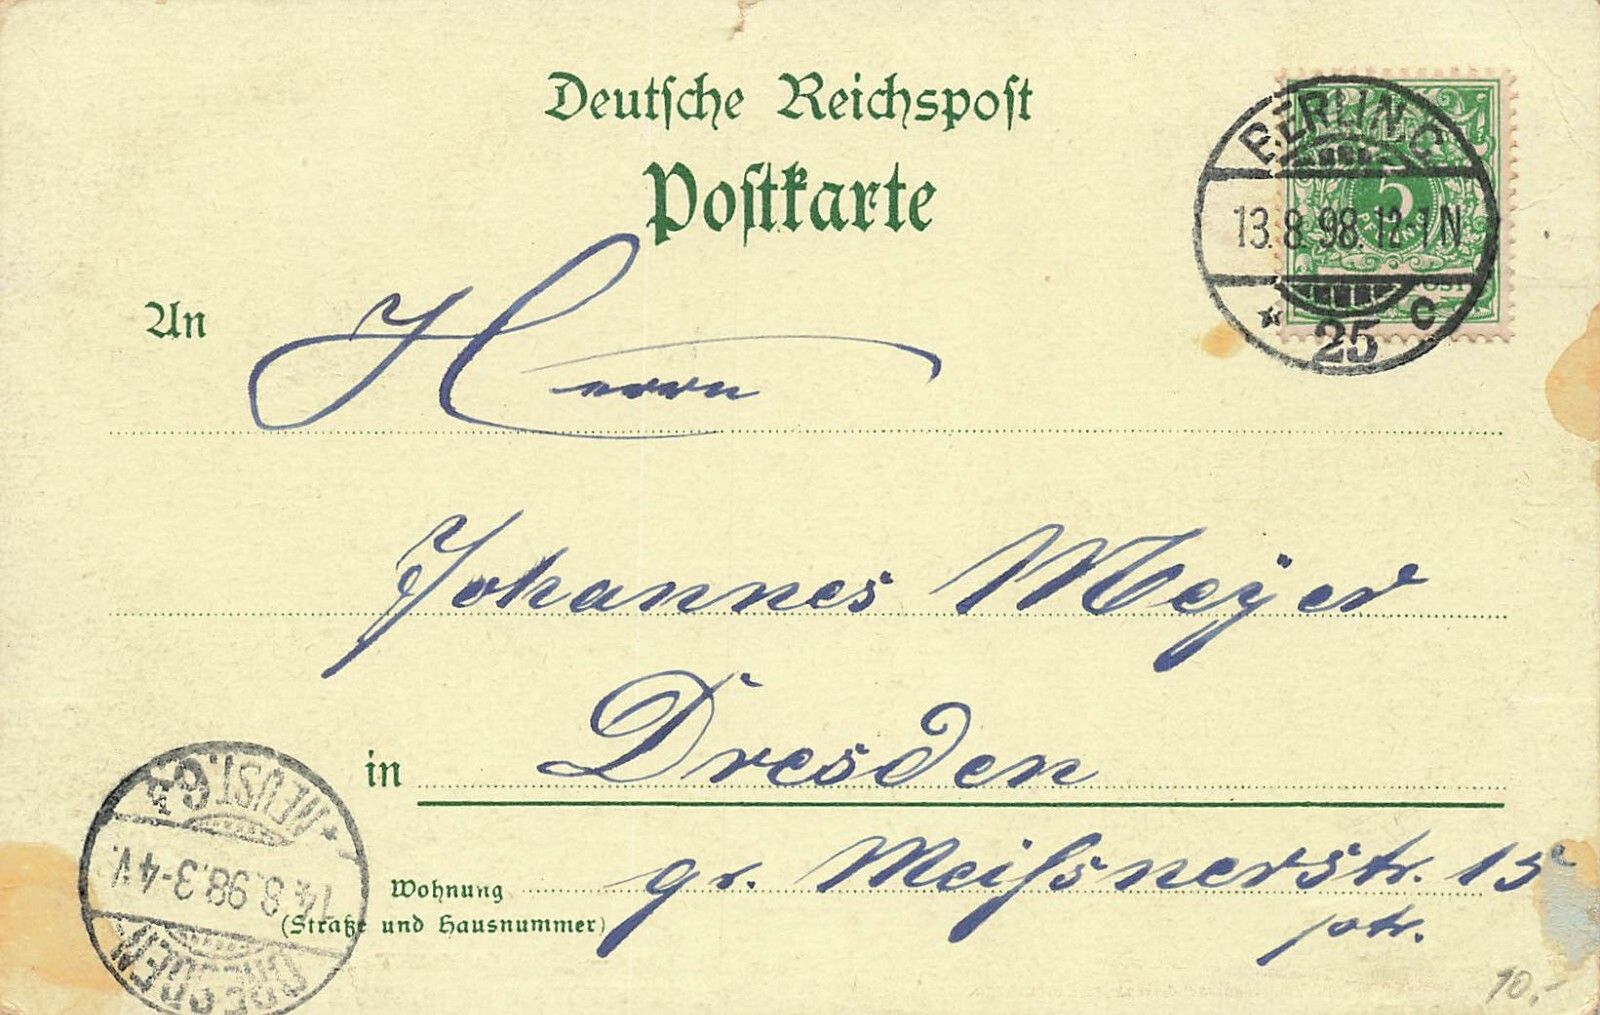 Deutsche Reichspost
Postkarte
BERLIN.C
5
13.8.98.12-1N
* 25 c
An Herrn
Johannes Meyer
in Dresden
Wohnung gr. Meißnerstr. 15
(Straße und Hausnummer) ptr.
DRESDEN
14.8.98.3-4V.
NEUST.
10,-